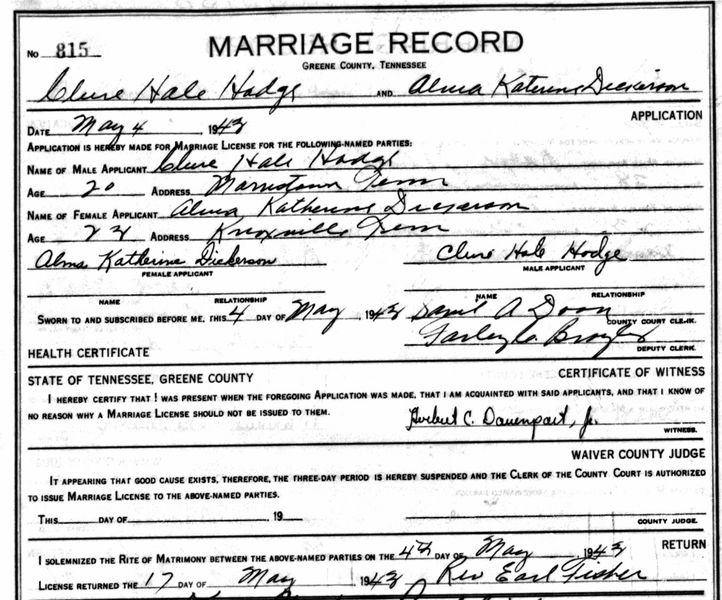 No 815
MARRIAGE RECORD
GREENE COUNTY, TENNESSEE
Clure Hale Hodge AND Alma Katherine Dickerson
APPLICATION
DATE May 4 1943
APPLICATION IS HEREBY MADE FOR MARRIAGE LICENSE FOR THE FOLLOWING-NAMED PARTIES:
NAME OF MALE APPLICANT Clure Hale Hodge
AGE 20 ADDRESS Morristown Tenn
NAME OF FEMALE APPLICANT Alma Katherine Dickerson
AGE ADDRESS Knoxville Tenn
Alma Katherine Dickerson Clure Hale Hodge
FEMALE APPLICANT MALE APPLICANT
NAME RELATIONSHIP NAME RELATIONSHIP
SWORN TO AND SUBSCRIBED BEFORE ME, THIS 4 DAY OF May 1943 A
COUNTY COURT CLERK.
DEPUTY CLERK.
HEALTH CERTIFICATE
STATE OF TENNESSEE, GREENE COUNTY CERTIFICATE OF WITNESS
I HEREBY CERTIFY THAT I WAS PRESENT WHEN THE FOREGOING APPLICATION WAS MADE, THAT I AM ACQUAINTED WITH SAID APPLICANTS, AND THAT I KNOW OF
NO REASON WHY A MARRIAGE LICENSE SHOULD NOT BE ISSUED TO THEM.
Herbert C. Davenpart, Jr.
WITNESS.
WAIVER COUNTY JUDGE
IT APPEARING THAT GOOD CAUSE EXISTS, THEREFORE, THE THREE-DAY PERIOD IS HEREBY SUSPENDED AND THE CLERK OF THE COUNTY COURT IS AUTHORIZED
TO ISSUE MARRIAGE LICENSE TO THE ABOVE-NAMED PARTIES.
THIS DAY OF 19
COUNTY JUDGE.
RETURN
I SOLEMNIZED THE RITE OF MATRIMONY BETWEEN THE ABOVE-NAMED PARTIES ON THE 4th DAY OF May 1943
LICENSE RETURNED THE 17 DAY OF May 1943 Rev Earl Fisher